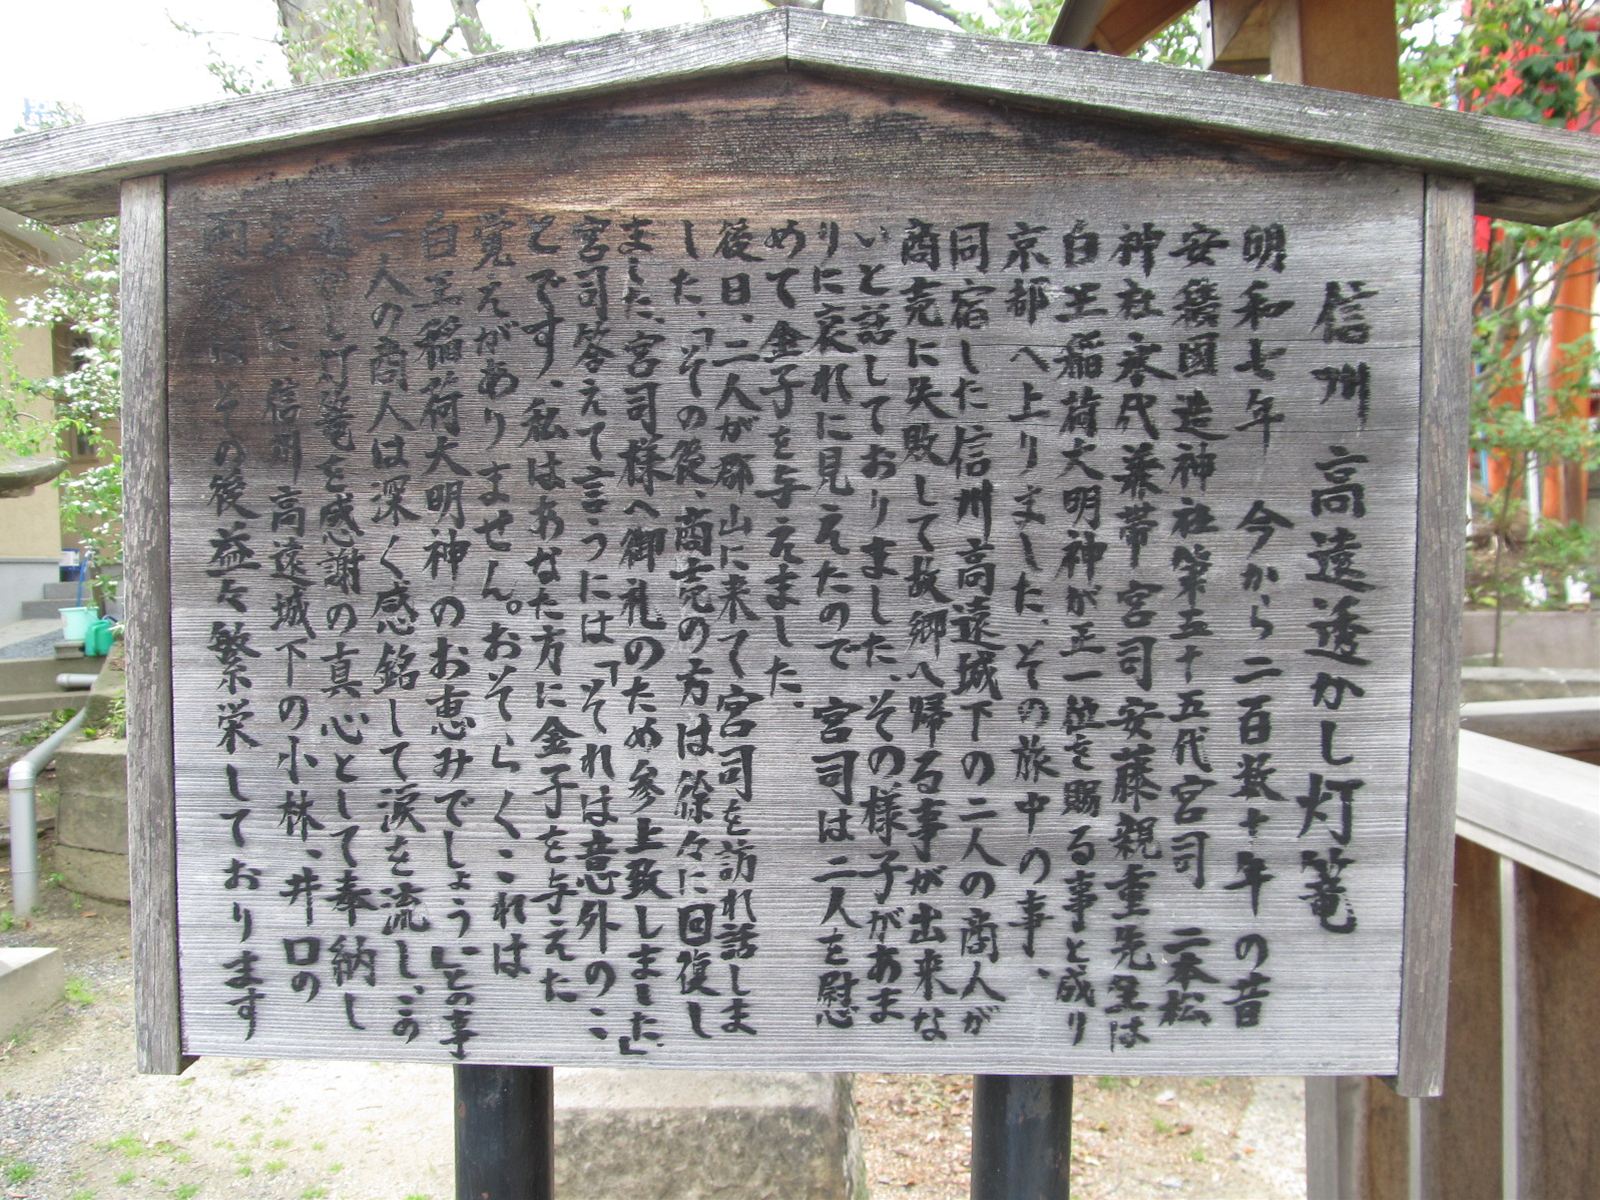 信州高遠透かし灯篭
明和七年 今から二百数十年の昔
安積國造神社第五十五代宮司 二本松
神社永代兼帯宮司安藤親重先生は
白王稲荷大明神が正一位を賜る事と成り
京都へ上りました、その旅中の事、
同宿した信州高遠城下の二人の商人が
商売に失敗して故郷へ帰る事が出来な
いと話しておりました、その様子があま
りに哀れに見えたので宮司は二人を慰
めて金子を与えました、
後日、二人が郡山に来て宮司を訪れ話しま
した、「その後、商売の方は餘々に回復し
ました、宮司様へ御礼のため参上致しました」
宮司答えて言うには「それは意外のこ
とです、私はあなた方に金子を与えた
覚えがありません。おそらくこれは
白王稲荷大明神のお恵みでしょう」との事
二人の商人は深く感銘して涙を流し、この
し灯篭を感謝の真心として奉納し
ました、信州高遠城下の小林、井口の
両家はその後益々繁栄しております